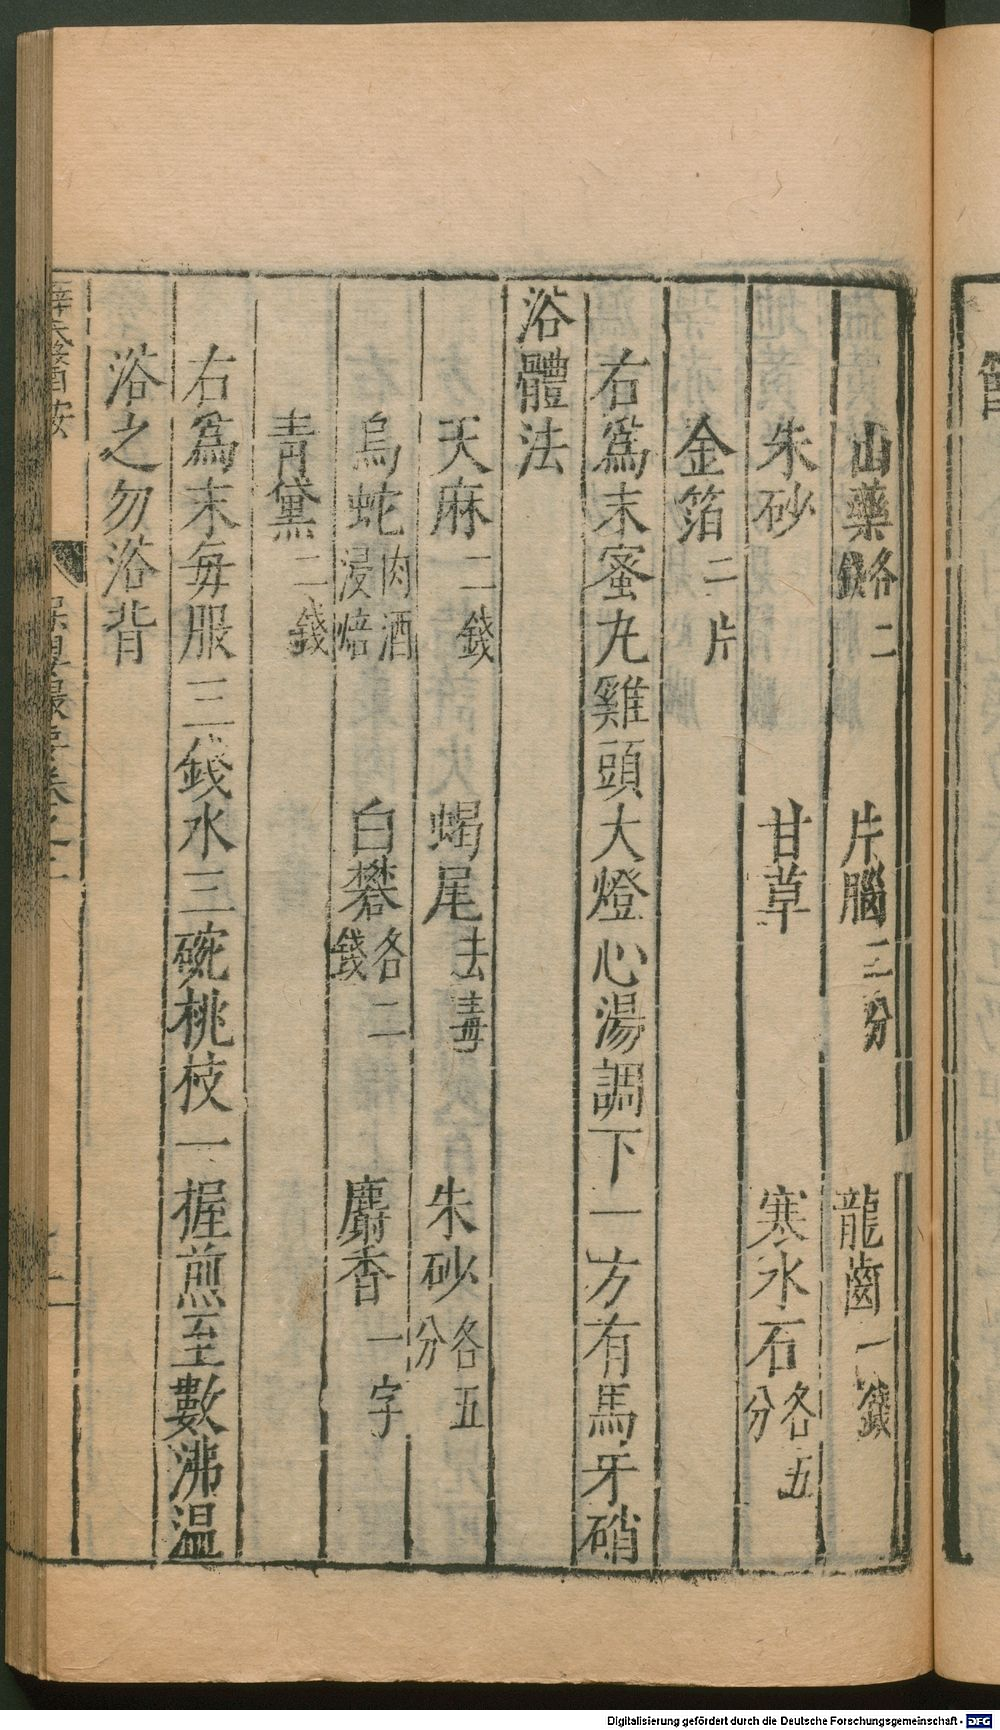 山藥各二錢 片腦二分 龍齒一錢
朱砂 甘草 寒水石各五分
金箔二片
右爲末蜜丸雞頭大燈心湯調下一方有馬牙硝
浴體法
天麻二錢 蝎尾去毒 朱砂各五分
烏蛇肉酒浸焙 白礬各二錢 麝香一字
青黛二錢
右爲末每服三錢水三碗桃枝一握煎至數沸温
浴之勿浴背
薛氏醫按 保嬰撮要卷之
Digitalisierung gefördert durch die Deutsche Forschungsgemeinschaft - DFG